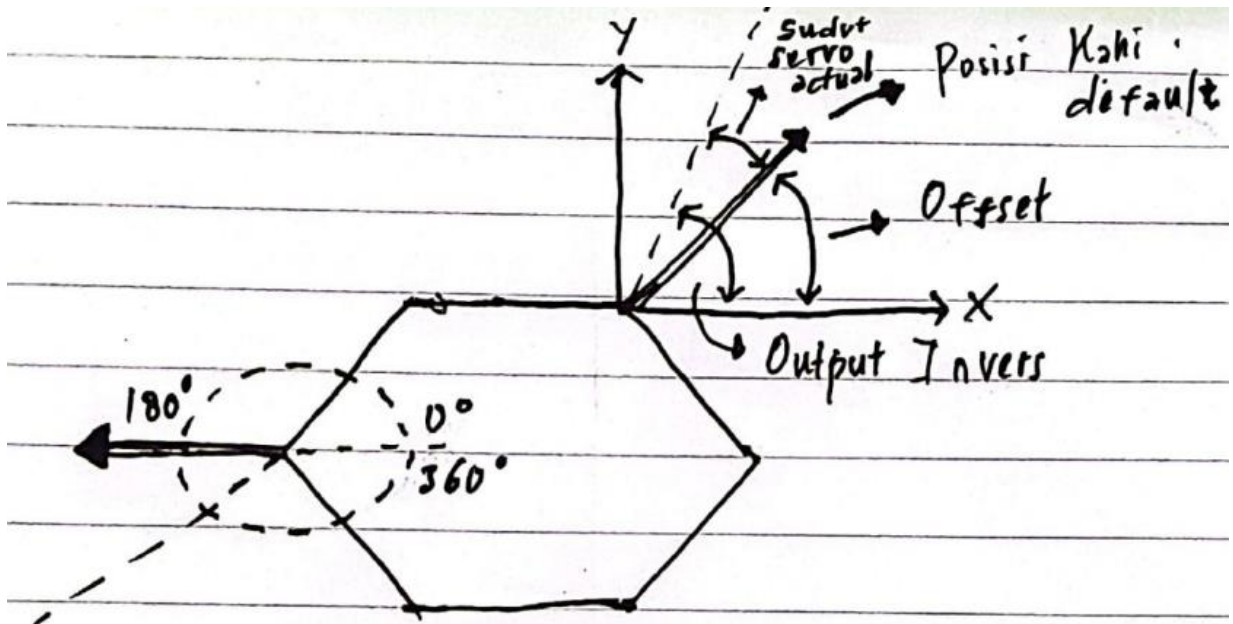 Y
Sudut
servo
actual
Posisi Kaki
default
Offset
X
Output Invers
180°
0°
360°